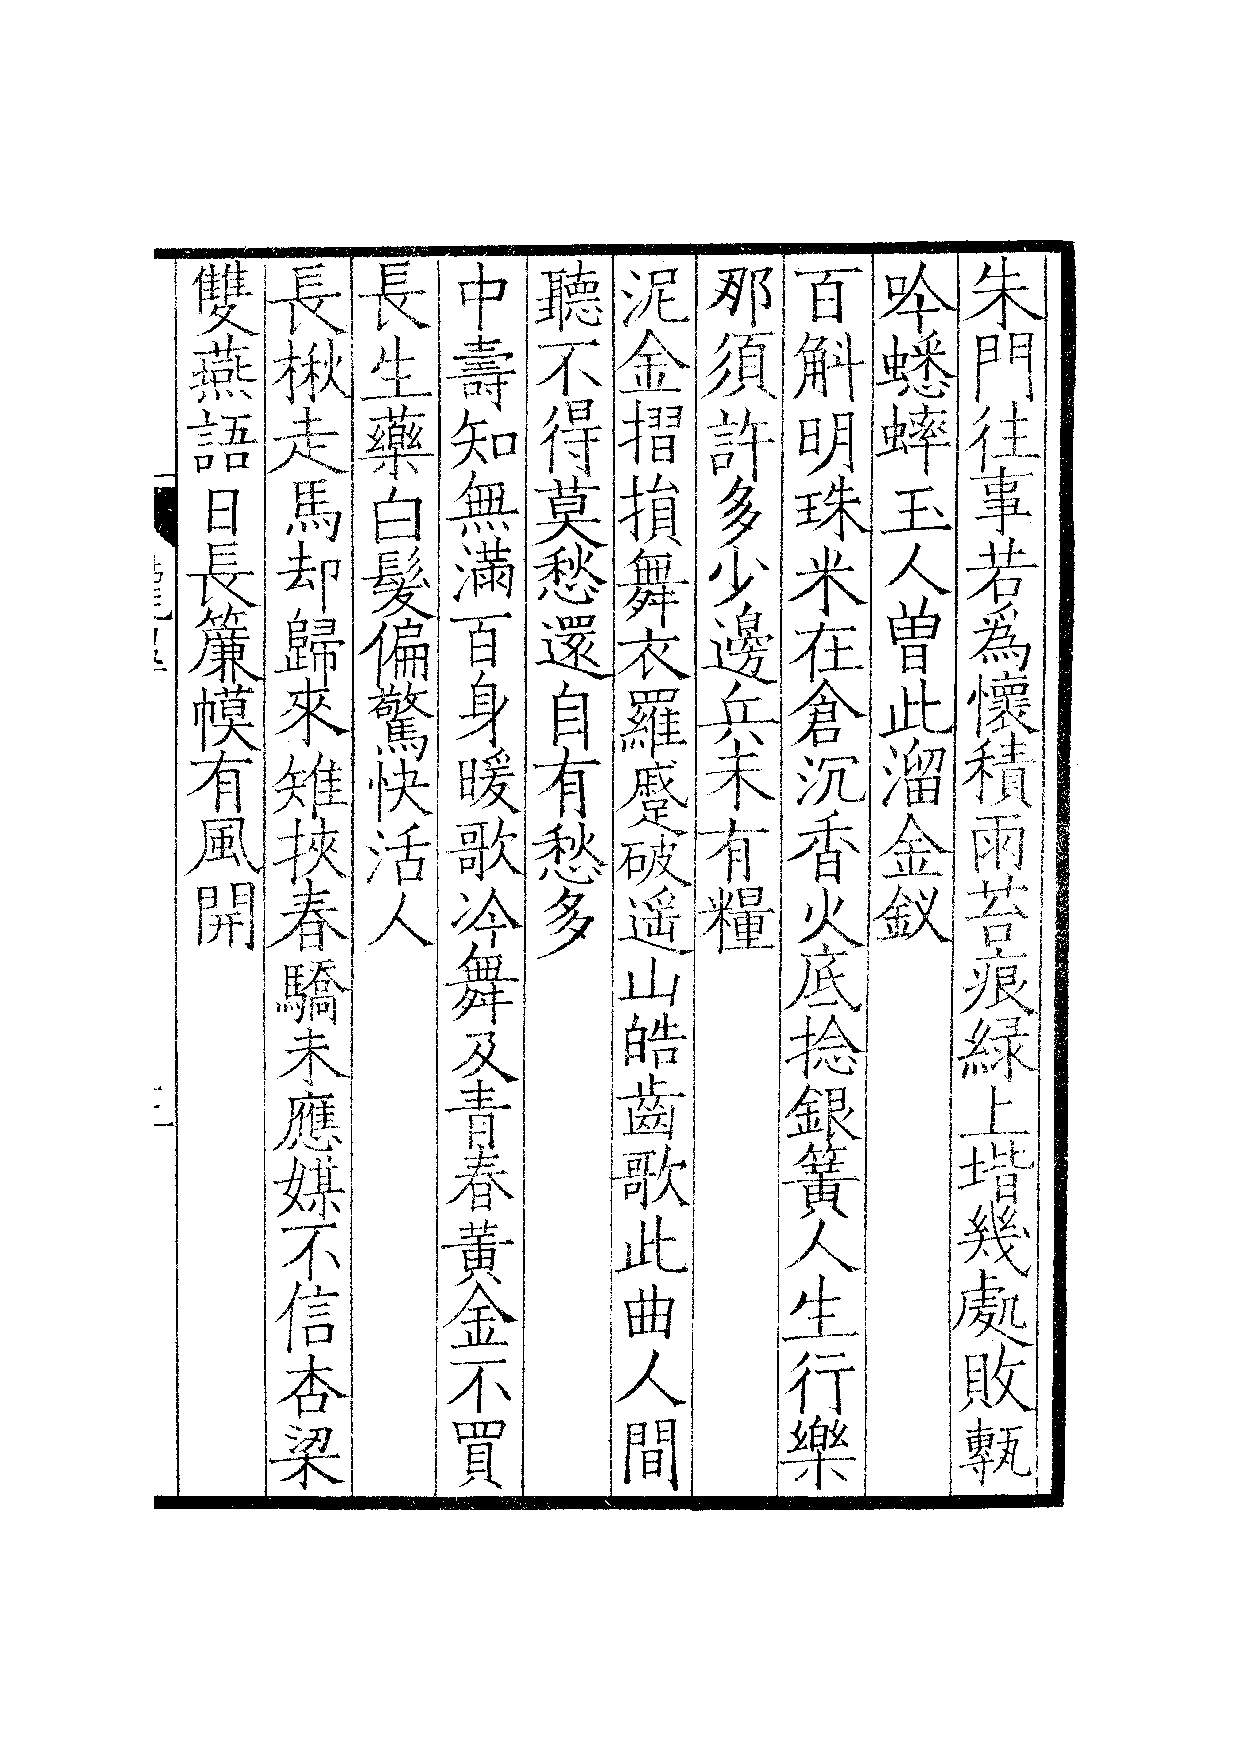 朱門往事若爲懷積雨苔痕緑上堦幾處敗甎
吟蟋蟀玉人曽此溜金釵
百斛明珠米在倉沉香火底捻銀簧人生行樂
那須許多少邊兵未有糧
泥金摺損舞衣羅蹙破遥山皓齒歌此曲人間
聽不得莫愁還自有愁多
中壽知無滿百身暖歌冷舞及青春黄金不買
長生藥白髪偏驚快活人
長楸走馬却歸來雉挾春驕未應媒不信杏梁
雙燕語日長簾幙有風開